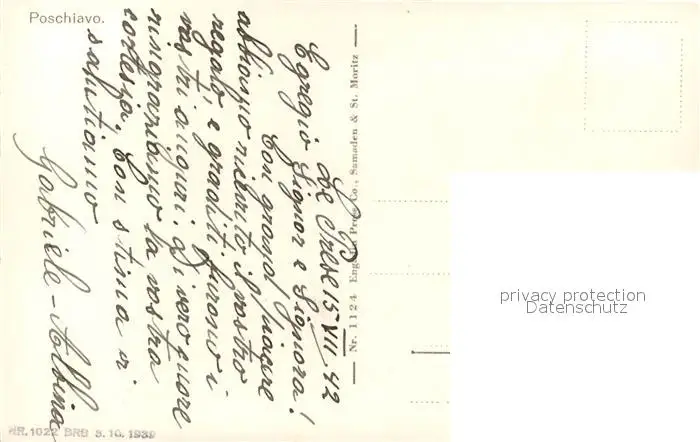 Poschiavo.
Le Prese 15 VII 42
Egregio Signor e Signora!
Con grand piacere
abbiamo ricevuto il vostro
regalo, e graditi furono i
vostri auguri. Di vero cuore
ringraziamo la vostra
cortesia, Con stima vi
salutiamo
Gabriele - Albina
Nr. 1124 Engadin Press Co., Samaden & St. Moritz
NR.1022 BRB 3.10.1939
privacy protection
Datenschutz